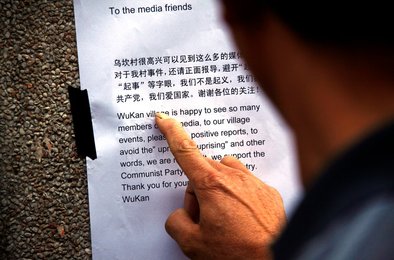 To the media friends
乌坎村很高兴可以见到这么多的媒体
对于我村事件，还请正面报导，避开"
"起事"等字眼，我们不是起义，我们
共产党，我们爱国家。谢谢各位的关注！
WuKan village is happy to see so many
members media, to our village
events, positive reports, to
avoid the" uprising" and other
words, we are support the
Communist Party
Thank you for your
WuKan